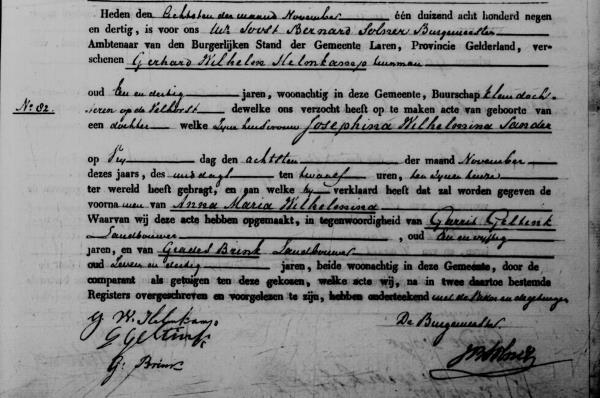 Heden den Achtsten der maand November één duizend acht honderd negen
en dertig, is voor ons Bernard Solner Burgemeester
Ambtenaar van den Burgerlijken Stand der Gemeente Laren, Provincie Gelderland, ver-
schenen Gerhard Wilhelm Helmkamp
oud Een en dertig jaren, woonachtig in deze Gemeente, Buurschap klein doch-
teren op de Velhorst dewelke ons verzocht heeft op te maken acte van geboorte van
No. 82.
een dochter welke Zijne huisvrouw Josephina Wilhelmina Sander
op dag den achtsten der maand November
dezes jaars, des middags ten twaalf uren, ten zijnen huize
ter wereld heeft gebragt, en aan welke hij verklaard heeft dat zal worden gegeven de
voornamen van Anna Maria Wilhelmina
Waarvan wij deze acte hebben opgemaakt, in tegenwoordigheid van Gerrit Geltink
Landbouwer, oud Een en vijftig
jaren, en van Grades Brink Landbouwer
oud Zeven en dertig jaren, beide woonachtig in deze Gemeente, door de
comparant als getuigen ten deze gekozen, welke acte wij, na in twee daartoe bestemde
Registers overgeschreven en voorgelezen te zijn, hebben onderteekend met de
G. W. Helmkamp De Burgemeester
G Geltink
G: Brink